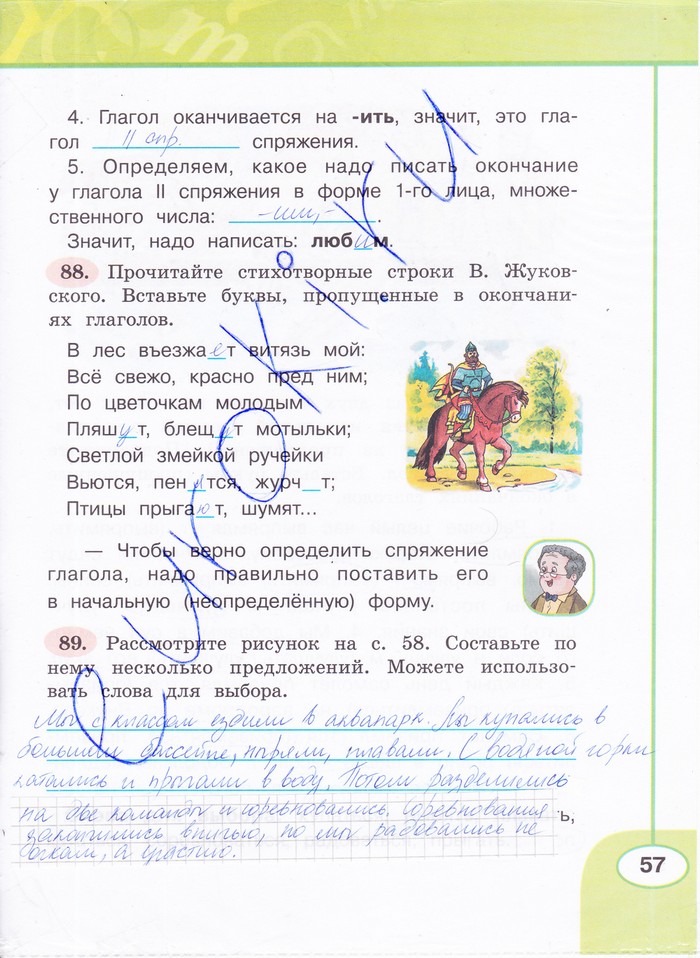 4. Глагол оканчивается на -ить, значит, это гла-
гол II спр. спряжения.
5. Определяем, какое надо писать окончание
у глагола II спряжения в форме 1-го лица, множе-
ственного числа: -им,-.
Значит, надо написать: любим.
88. Прочитайте стихотворные строки В. Жуков-
ского. Вставьте буквы, пропущенные в окончани-
ях глаголов.
В лес въезжает витязь мой:
Всё свежо, красно пред ним;
По цветочкам молодым
Пляшут, блещут мотыльки;
Светлой змейкой ручейки
Вьются, пенятся, журч_т;
Птицы прыгают, шумят...
— Чтобы верно определить спряжение
глагола, надо правильно поставить его
в начальную (неопределённую) форму.
89. Рассмотрите рисунок на с. 58. Составьте по
нему несколько предложений. Можете использо-
вать слова для выбора.
Мы с классом ездили в аквапарк. Мы купались в
большом бассейне, ныряли, плавали. С водяной горки
катались и прыгали в воду. Потом разделились
на две команды и соревновались. Соревнования
закончились ничью, но мы радовались не
очкам, а участию.
ь,
57